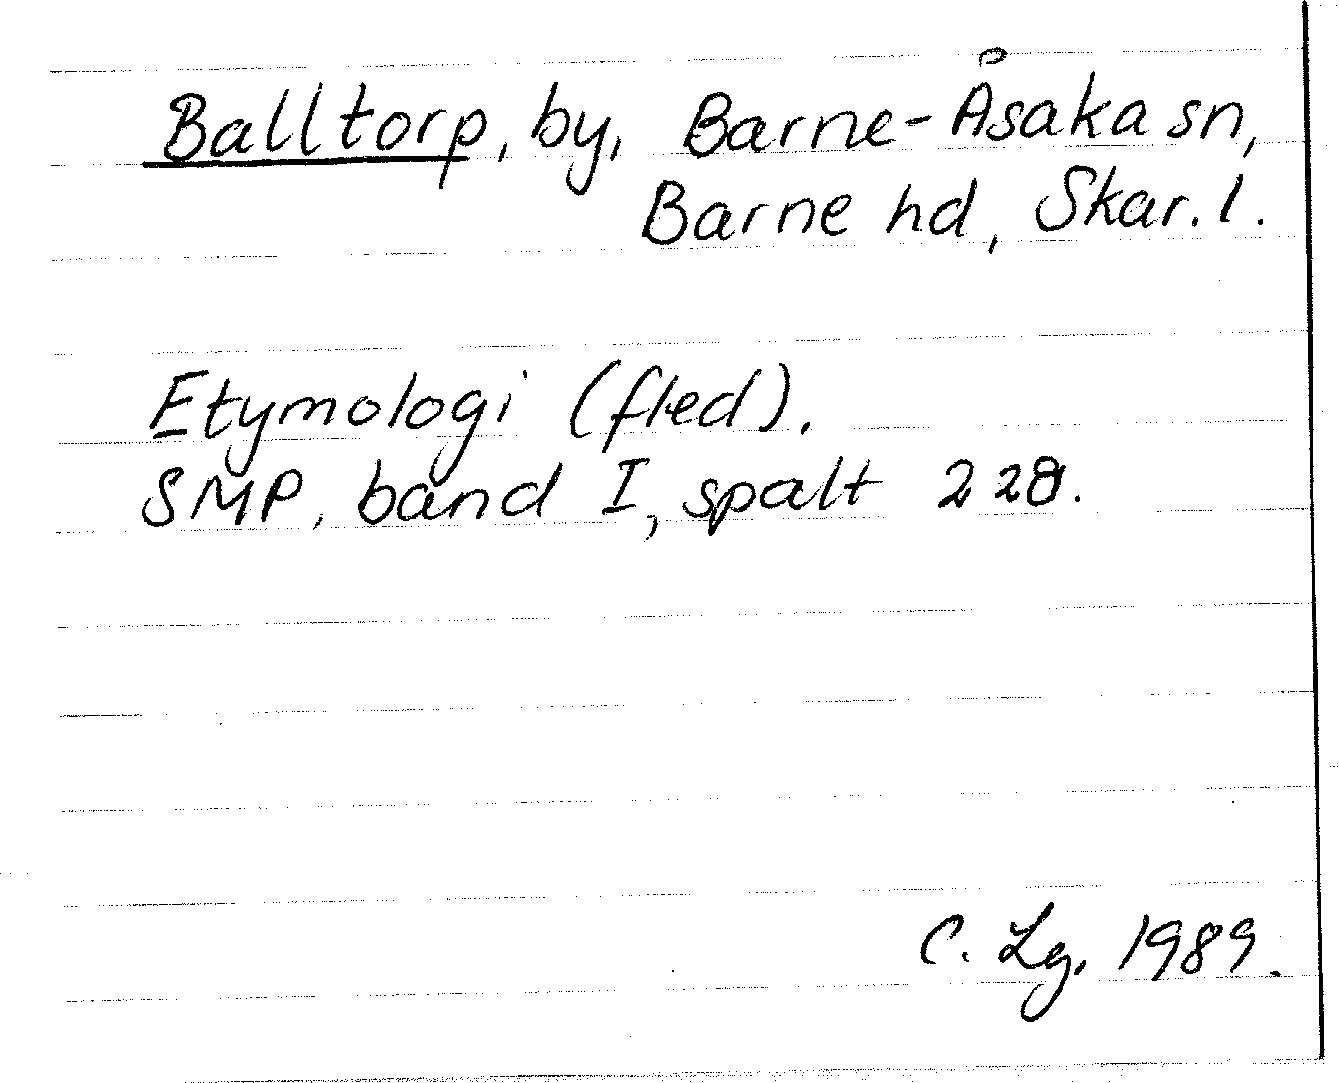 Balltorp, by, Barne-Åsaka sn,
Barne hd, Skar. l.
Etymologi (fled).
SMP, band I, spalt 228.
C. Lg. 1989.